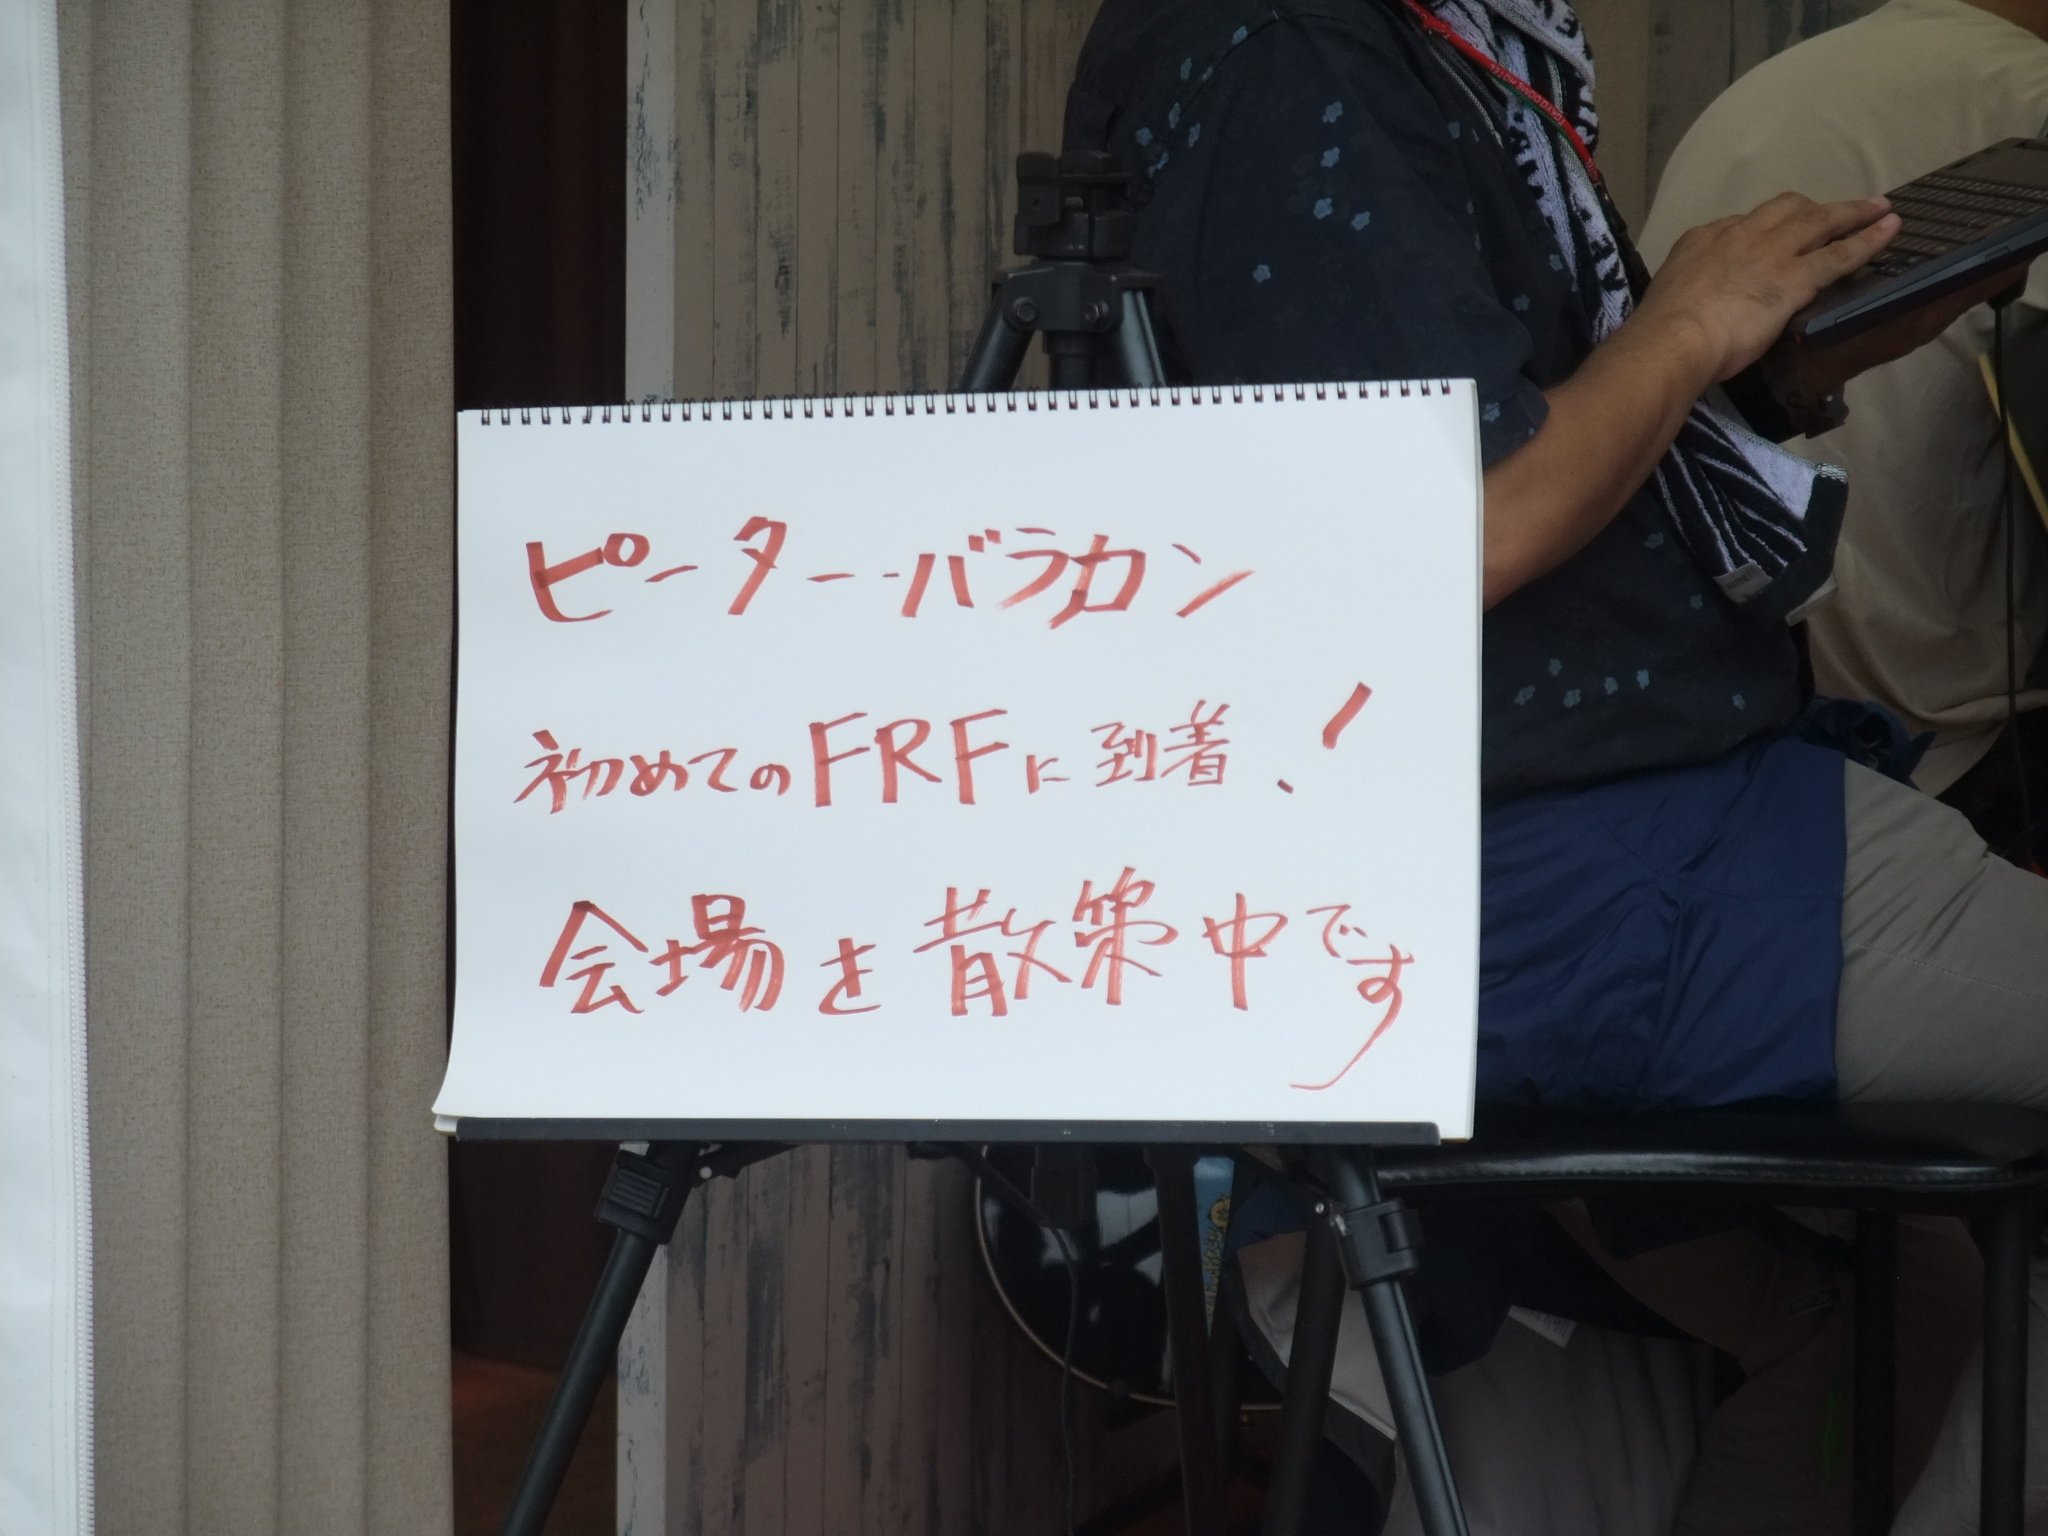 ピーター・バラカン
初めてのFRFに到着!
会場を散策中です
TOKYO DOME HOTEL